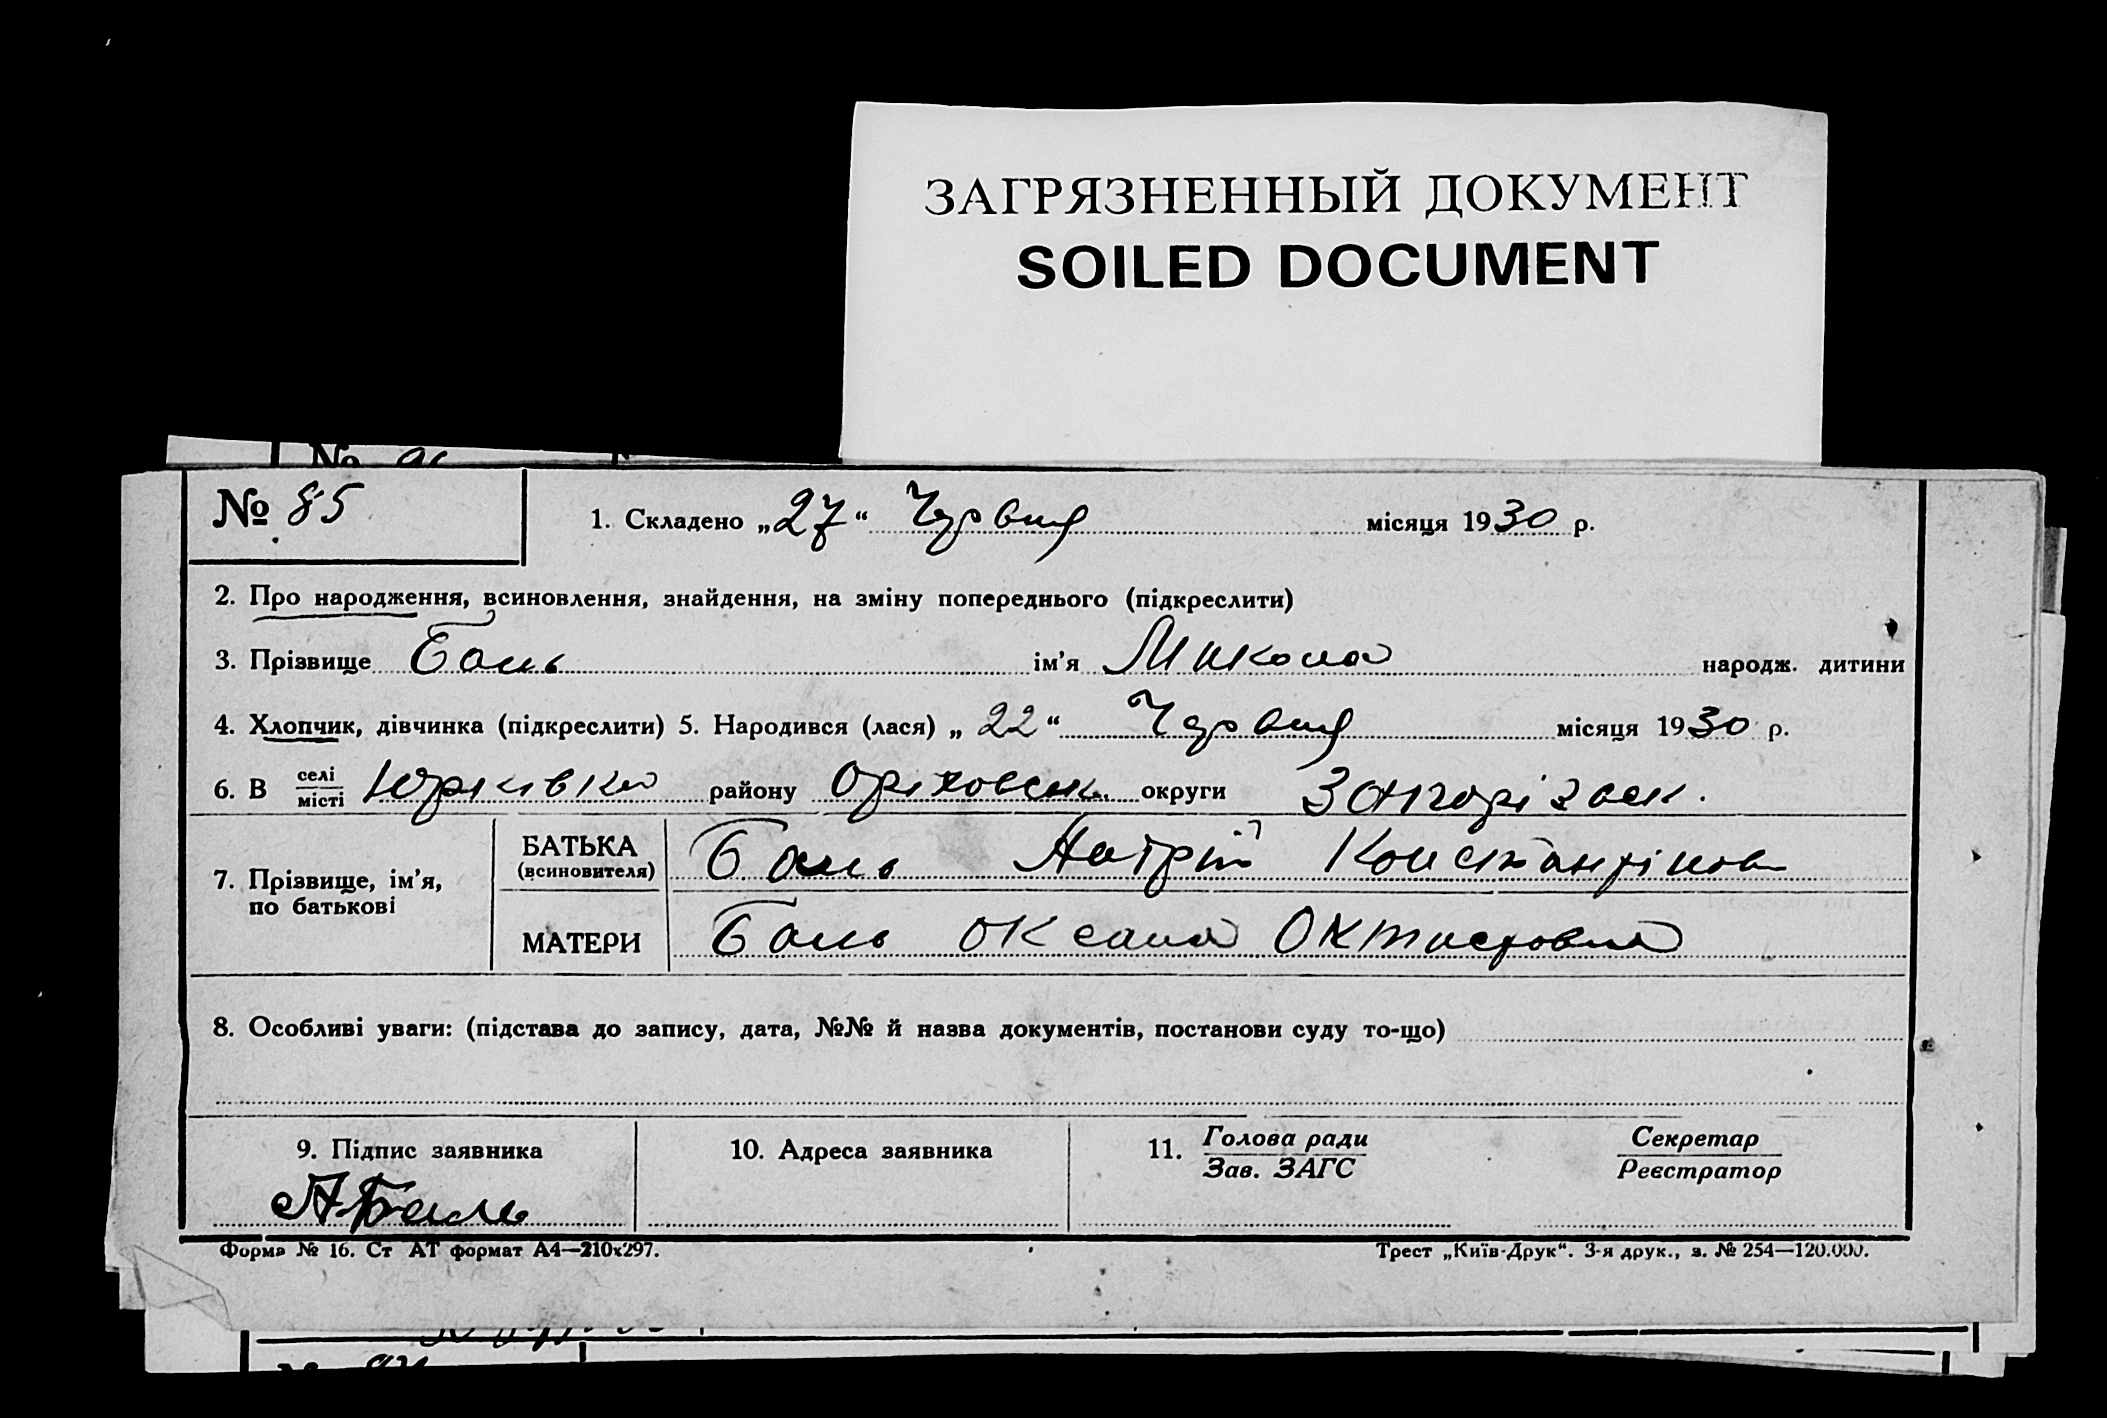 ЗАГРЯЗНЕННЫЙ ДОКУМЕНТ
SOILED DOCUMENT
№ 85
1. Складено „27“ Червня місяця 1930 р.
2. Про народження, всиновлення, знайдення, на зміну попереднього (підкреслити)
3. Прізвище Баль ім’я Микола народж. дитини
4. Хлопчик, дівчинка (підкреслити) 5. Народився (лася) „22“ Червня місяця 1930 р.
6. В селі/місті Юрківка району Оріховськ. округи Запорізськ.
7. Прізвище, ім’я, по батькові
БАТЬКА (всиновителя) Баль
МАТЕРИ Баль Оксана
8. Особливі уваги: (підстава до запису, дата, №№ й назва документів, постанови суду то-що)
9. Підпис заявника
10. Адреса заявника
11. Голова ради
Зав. ЗАГС
Секретар
Реєстратор
АБаль
Форма № 16. Ст АТ формат А4—210х297.
Трест „Київ-Друк“. 3-я друк., з. № 254—120.000.